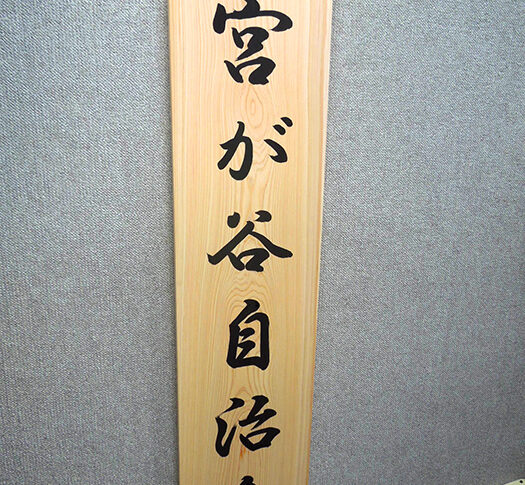 宮が谷自治